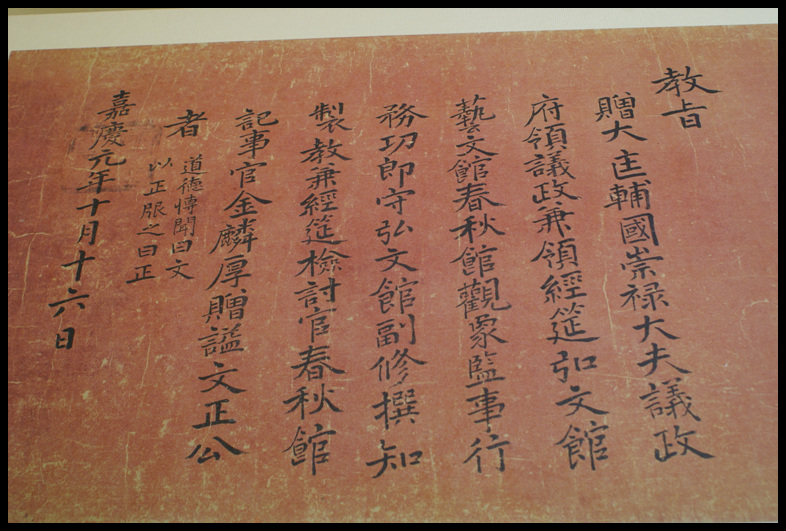 教旨
贈大匡輔國崇禄大夫議政
府領議政兼領經筵弘文館
藝文館春秋館觀象監事行
務功郎守弘文館副修撰知
製教兼經筵檢討官春秋館
記事官金麟厚贈諡文正公
者 道德博聞曰文
以正服之曰正
嘉慶元年十月十六日